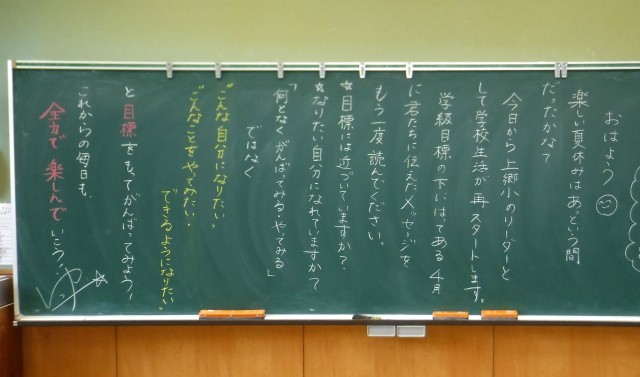 おはよう
楽しい夏休みはあっという間
だったかな？
今日から上郷小のリーダーと
して学校生活が再スタートします。
学級目標の下にはってある4月
に君たちに伝えたメッセージを
もう一度読んでください。
☆目標には近づいていますか？
☆なりたい自分になれていますか？
「何となくがんばってみる・やってみる」
ではなく
こんな自分になりたい。
こんなことをやってみたい。
できるようになりたい
と目標をもってがんばってみよう！
これからの毎日も、
全力で楽しんでいこう！